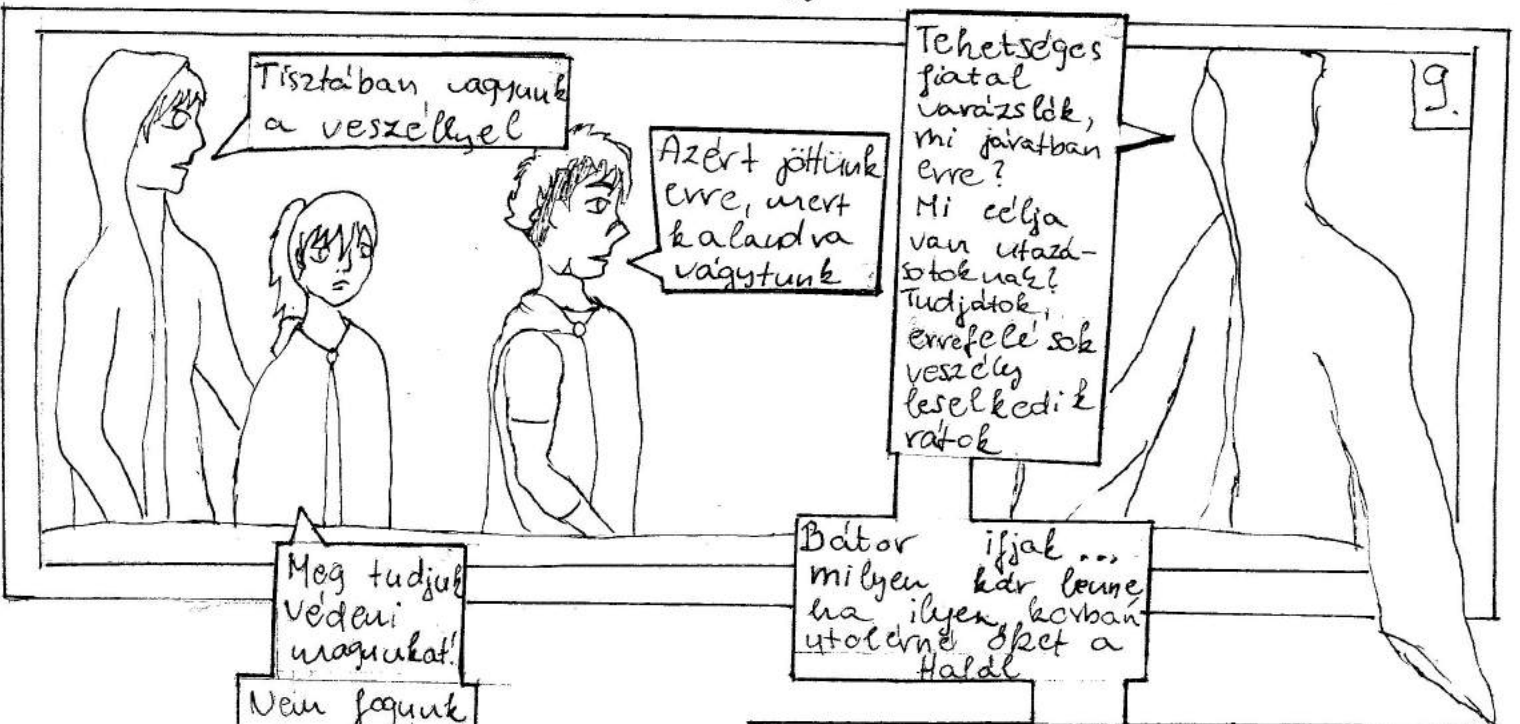 Tisztában vagyunk
a veszéllyel
Azért jöttünk
erre, mert
kalandra
vágytunk
Tehetséges
fiatal
varázslók,
mi járatban
erre?
Mi célja
van utazá-
sotoknak?
Tudjátok,
errefelé sok
veszély
leselkedik
rátok
9.
Meg tudjuk
védeni
magunkat!
Nem fogunk
Bátor ifjak...
milyen kár lenne
ha ilyen korban
utolérné őket a
Halál